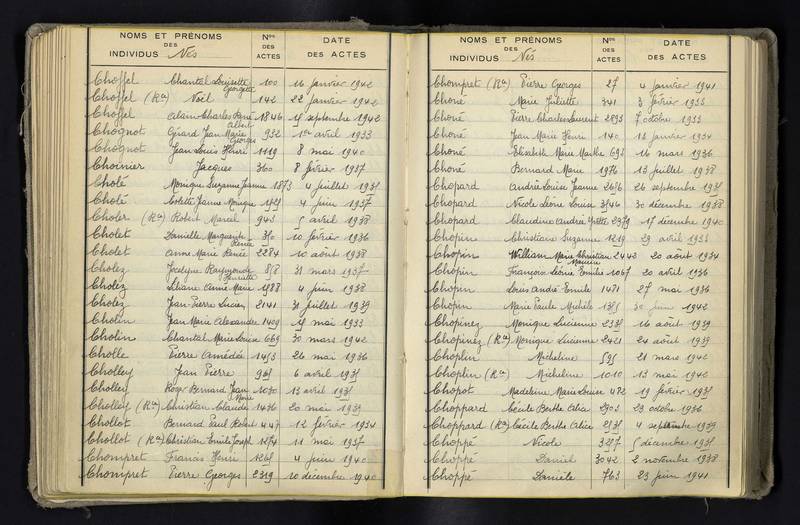 NOMS ET PRÉNOMS DES INDIVIDUS Nés Nos DES ACTES DATE DES ACTES
Choffel Chantal Louisette Georgette 100 16 janvier 1942
Choffel (Rct) Noël 142 22 janvier 1942
Choffel Alain Charles René Albert 1846 septembre 1942
Chognot Gérard Jean Marie Georges 932 1er avril 1933
Chognot Jean Louis Henri 1119 8 mai 1940
Choinier Jacques 360 8 février 1937
Cholé Monique Suzanne Jeanne 1873 4 juillet
Cholé Colette Jeanne Monique 4 juin 1937
Choler (Rct) Robert Marcel 943 5 avril 1938
Cholet Danielle Marguerite Renée 10 février 1936
Cholet Anne Marie Renée 2284 10 août 1938
Cholez Jocelyne Raymonde Henriette 31 mars 1937
Cholez Liliane Annie Marie 4 juin 1938
Cholez Jean Pierre Lucien 2141 31 juillet 1939
Cholin Jean Marie Alexandre 1409 mai 1933
Cholin Chantal Marie Louise 669 30 mars 1942
Cholle Pierre Amédée 1453 26 mai 1936
Cholley Jean Pierre 6 avril
Cholley Roger Bernard Jean Marie 1030 13 avril
Cholley (Rct) Christian Claude 1436 20 mai 1939
Chollot Bernard Paul Robert 447 12 février 1934
Chollot (Rct) Christian Emile Joseph 1274 11 mai 1937
Chompret Francis Henri 4 juin 1940
Chompret Pierre Georges 2319 10 décembre 1940
NOMS ET PRÉNOMS DES INDIVIDUS Nés Nos DES ACTES DATE DES ACTES
Chompret (Rct) Pierre Georges 27 4 janvier 1941
Choné Marie Juliette 341 3 février 1933
Choné Pierre Charles Laurent 2893 7 octobre 1933
Choné Jean Marie Henri 140 13 janvier 1934
Choné Elisabeth Marie Marthe 693 16 mars 1936
Choné Bernard Marie 1976 13 juillet 1938
Chopard Andrée Louise Jeanne 2616 26 septembre
Chopard Nicole Léonie Louise 3546 30 décembre 1938
Chopard Claudine Andrée Yvette 2379 17 décembre 1940
Chopin Christiane Suzanne 1219 29 avril 1933
Chopin William Marie Christian Maurice 2443 20 août 1934
Chopin Françoise Léonie Emilie 1067 20 avril 1936
Chopin Louis André Emile 1481 27 mai 1936
Chopin Marie Paule Michèle 30 juin 1942
Chopinez Monique Lucienne 16 août 1939
Chopinez (Rct) Monique Lucienne 2421 24 août 1939
Choplin Micheline 595 21 mars 1942
Choplin (Rct) Micheline 1010 13 mai 1942
Chopot Madeleine Marie Louise 482 19 février
Choppard Cécile Berthe Alice 2903 23 octobre 1936
Choppard (Rct) Cécile Berthe Alice 4 septembre 1939
Choppé Nicole 5 décembre
Choppé Daniel 3042 2 novembre 1938
Choppé Danièle 763 23 juin 1941